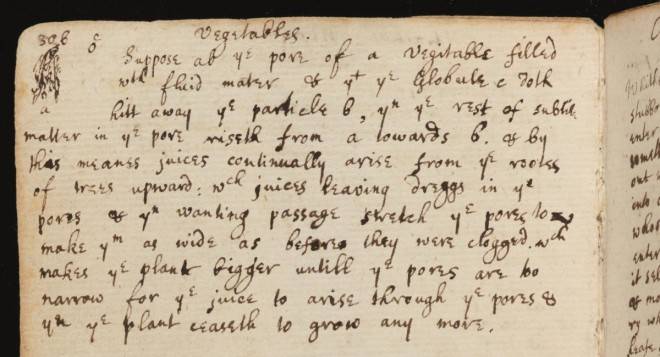 306 Vegetables.
6
Suppose ab yᵉ pore of a Vegitable filled
wᵗʰ fluid mater & yᵗ yᵉ Globule c doth
a hitt away yᵉ particle b, yⁿ yᵉ rest of subtile
matter in yᵉ pore riseth from a towards b. & by
this meanes juices continually arise from yᵉ roots
of trees upward: wᶜʰ juices leaving dreggs in yᵉ
pores & yⁿ wanting passage stretch yᵉ pores to
make yᵐ as wide as before they were clogged. wᶜʰ
makes yᵉ plant bigger untill yᵉ pores are too
narrow for yᵉ juice to arise through yᵉ pores &
yⁿ yᵉ plant ceaseth to grow any more.